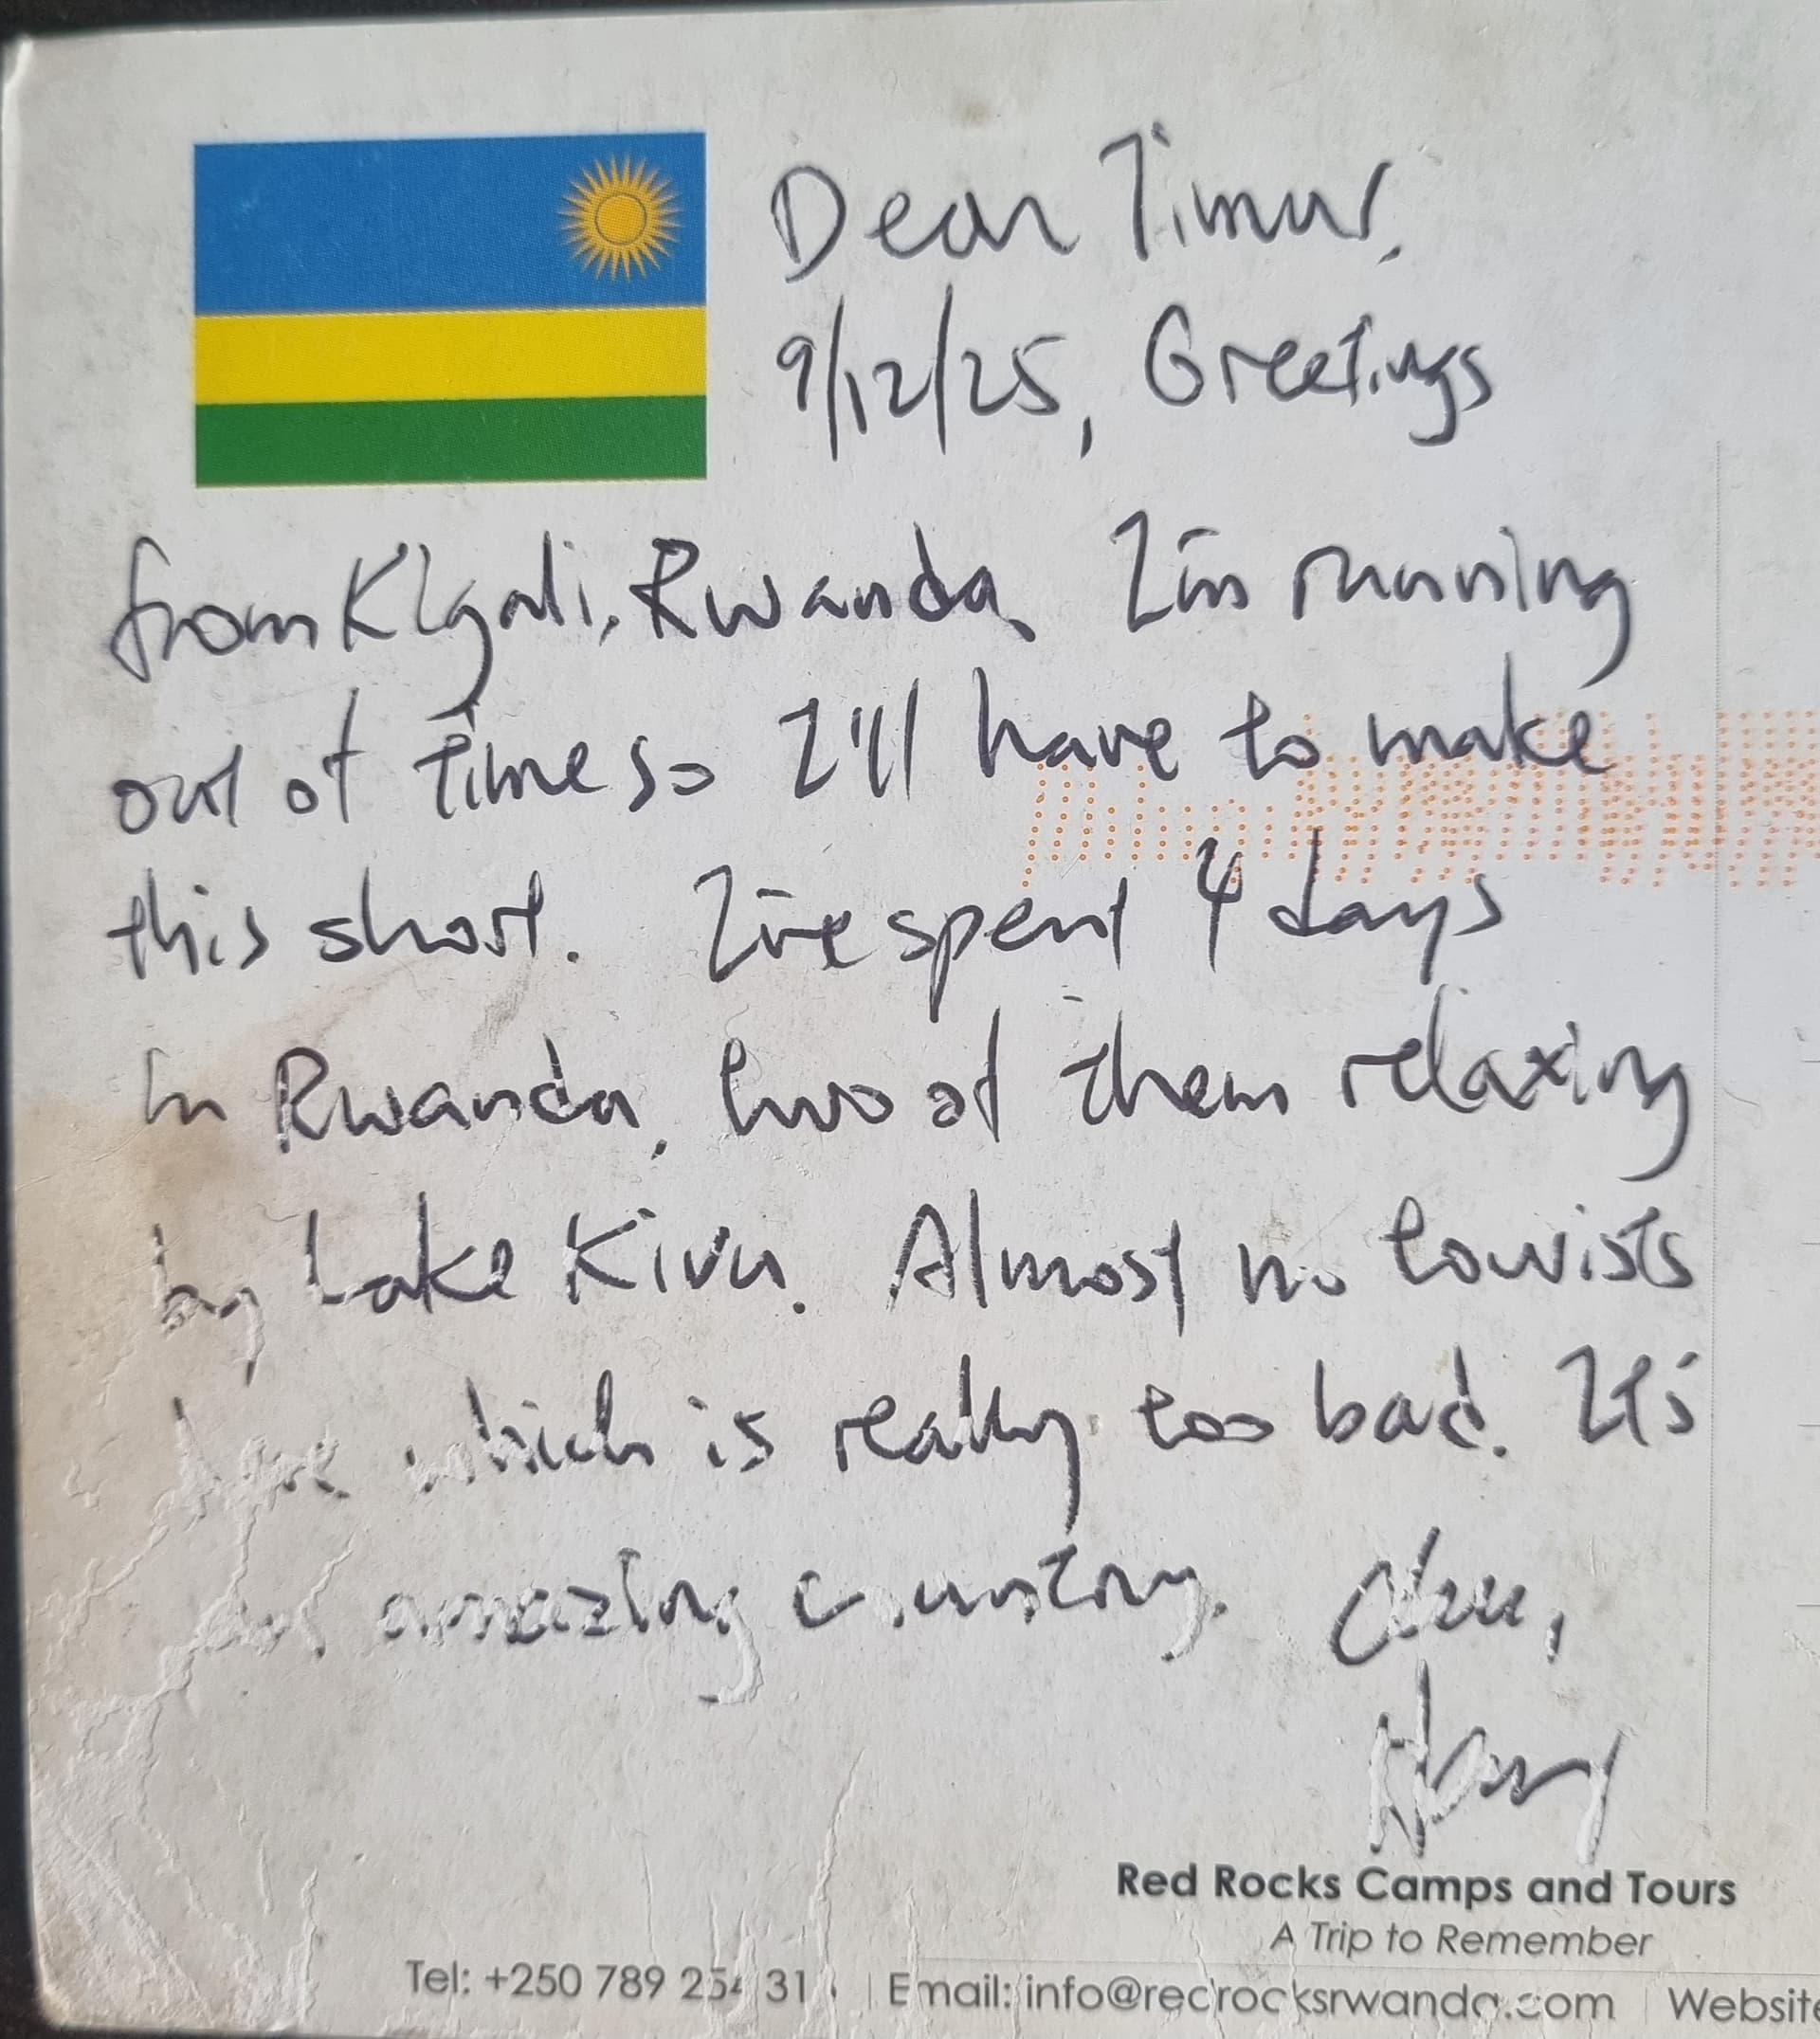 Dear Timur,
9/12/25, Greetings
from Kigali, Rwanda. I'm running
out of time so I'll have to make
this short. I've spent 4 days
in Rwanda, two of them relaxing
by Lake Kivu. Almost no tourists
here which is really too bad. It's
an amazing country.
Red Rocks Camps and Tours
A Trip to Remember
Tel: +250 789 254 31 | Email: info@redrocksrwanda.com | Website